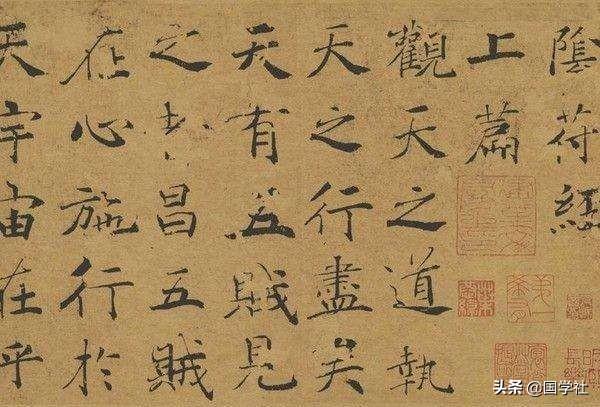 陰符經
上篇
觀天之道執
天之行盡矣
天有五賊見
之者昌五賊
在心施行於
天宇宙在乎
头条 @国学社